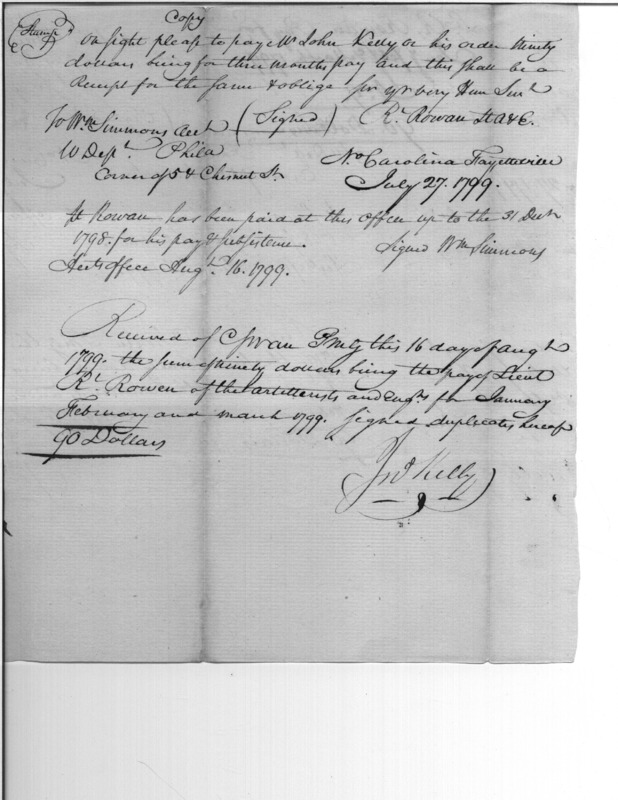 Copy
(Stamp)
On sight please to pay Mr John Kelly or his order ninety
dollars being for three months pay and this shall be a
Receipt for the same & oblige Sir yr very Hum Servt
To Wm Simmons Acct (Signed) R. Rowan Lt A&E.
W Dept Phila
Corner of 5 & Chesnut St.
No Carolina Fayetteville
July 27. 1799.
Lt Rowan has been paid at this Office up to the 31 Decbr
1798. for his pay & subsistence.
Signed Wm Simmons
Accts office Augt 16. 1799.
Received of C Swan PMG this 16 day of Augt
1799. the sum of ninety dollars being the pay of Lieut
Rt Rowen of the artillerists and Engrs for January
February and march 1799. Signed duplicates hereof
90 Dollars
Jno Kelly